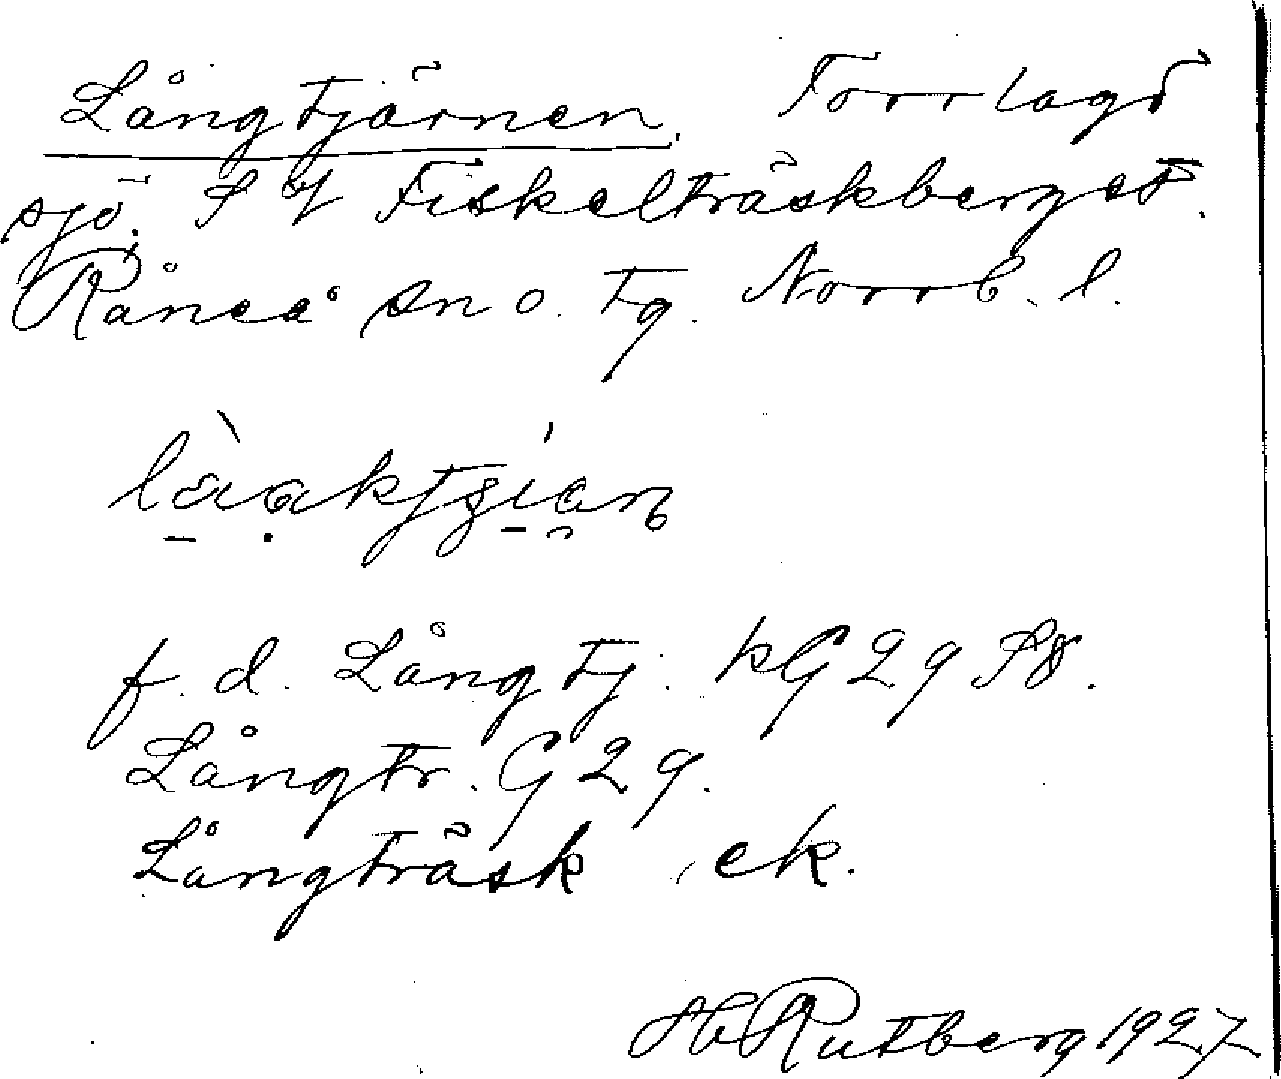 Långtjärnen. Torrlagd
sjö. S of Fiskelträskberget.
Råneå sn o. tg. Norrb. l.
f. d. Långtj. kG 29 SV.
Långtr. G 29.
Långträsk ek.
H Rutberg 1927